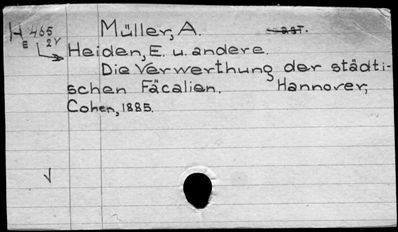 Müller, A.
H 465
E 2V
Heiden, E. u. andere.
Die Verwerthung der städti-
schen Fäcalien. Hannover,
Cohen, 1885.